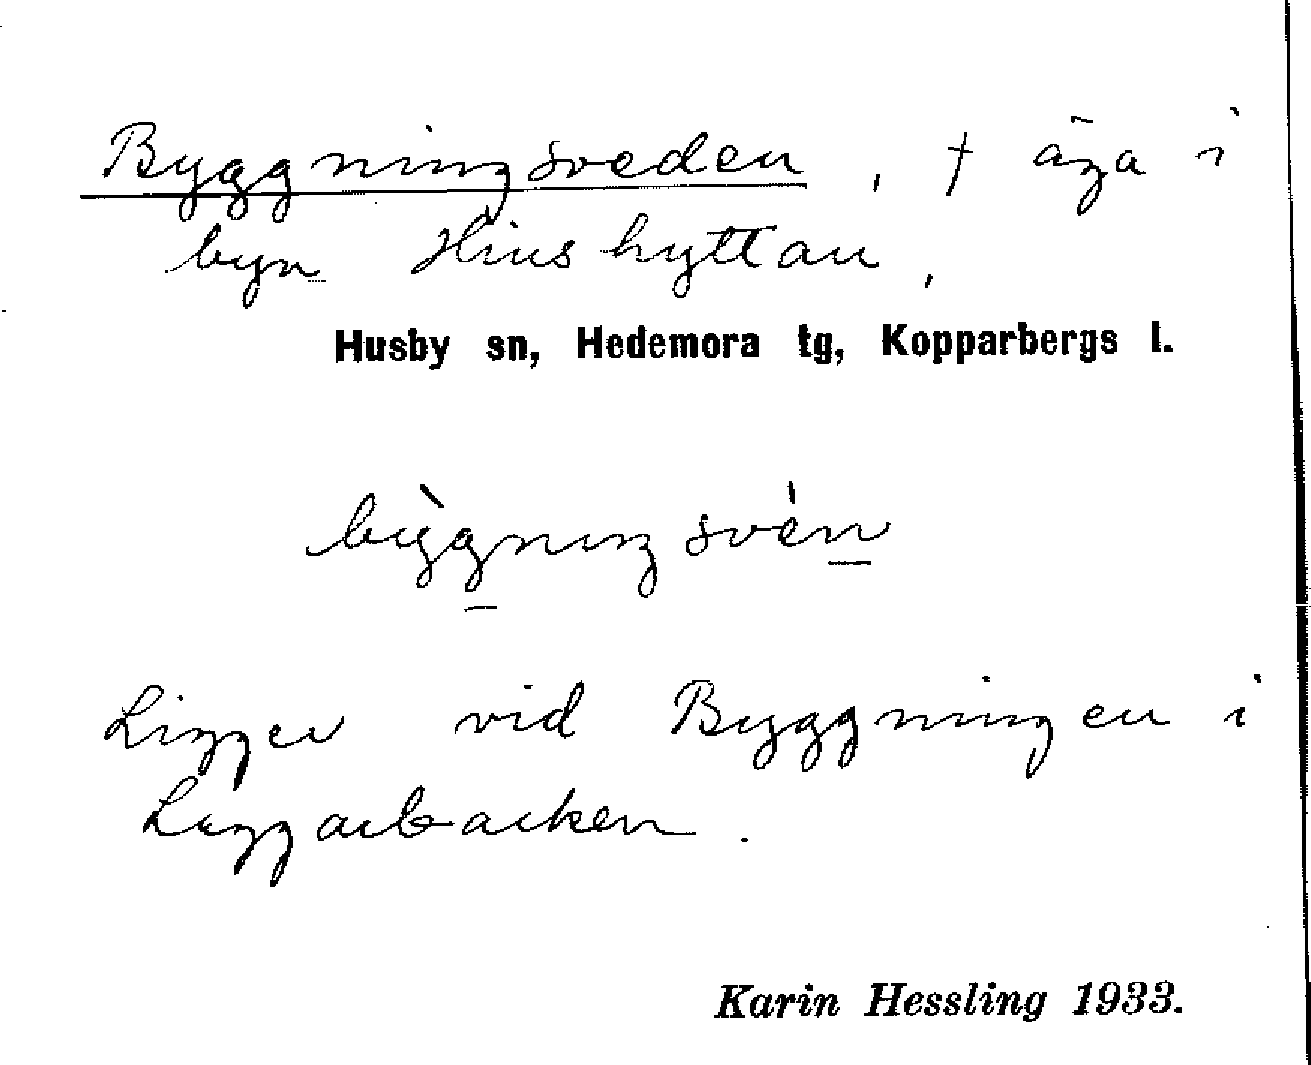 Byggningsveden, † äga i
byn Hinshyttan,
Husby sn, Hedemora tg, Kopparbergs l.
bỳgningsvén
Ligger vid Byggningen i
Laggarbacken.
Karin Hessling 1933.